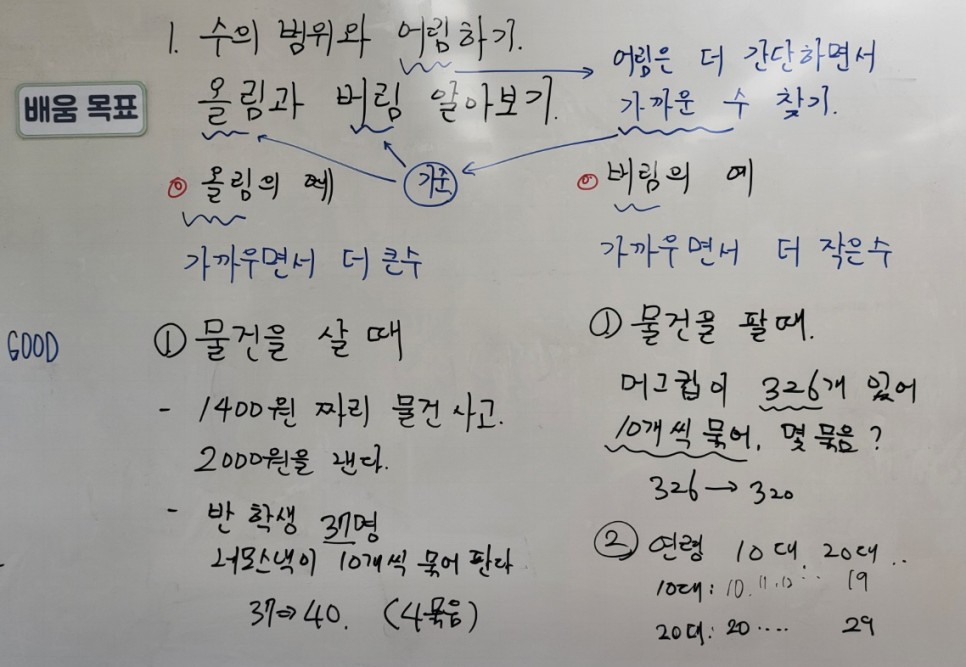 1. 수의 범위와 어림하기.
어림은 더 간단하면서
가까운 수 찾기.
배움 목표
올림과 버림 알아보기.
기준
올림의 예
가까우면서 더 큰수
GOOD
① 물건을 살 때
- 1400원 짜리 물건 사고.
2000원을 낸다.
- 반 학생 37명
10개씩 묶어 판다
37⇒40. (4묶음)
버림의 예
가까우면서 더 작은수
① 물건을 팔 때.
머그컵이 326개 있어
10개씩 묶어, 몇 묶음?
326→320
② 연령 10대, 20대..
10대: 10. 11. 12... 19
20대: 20.... 29